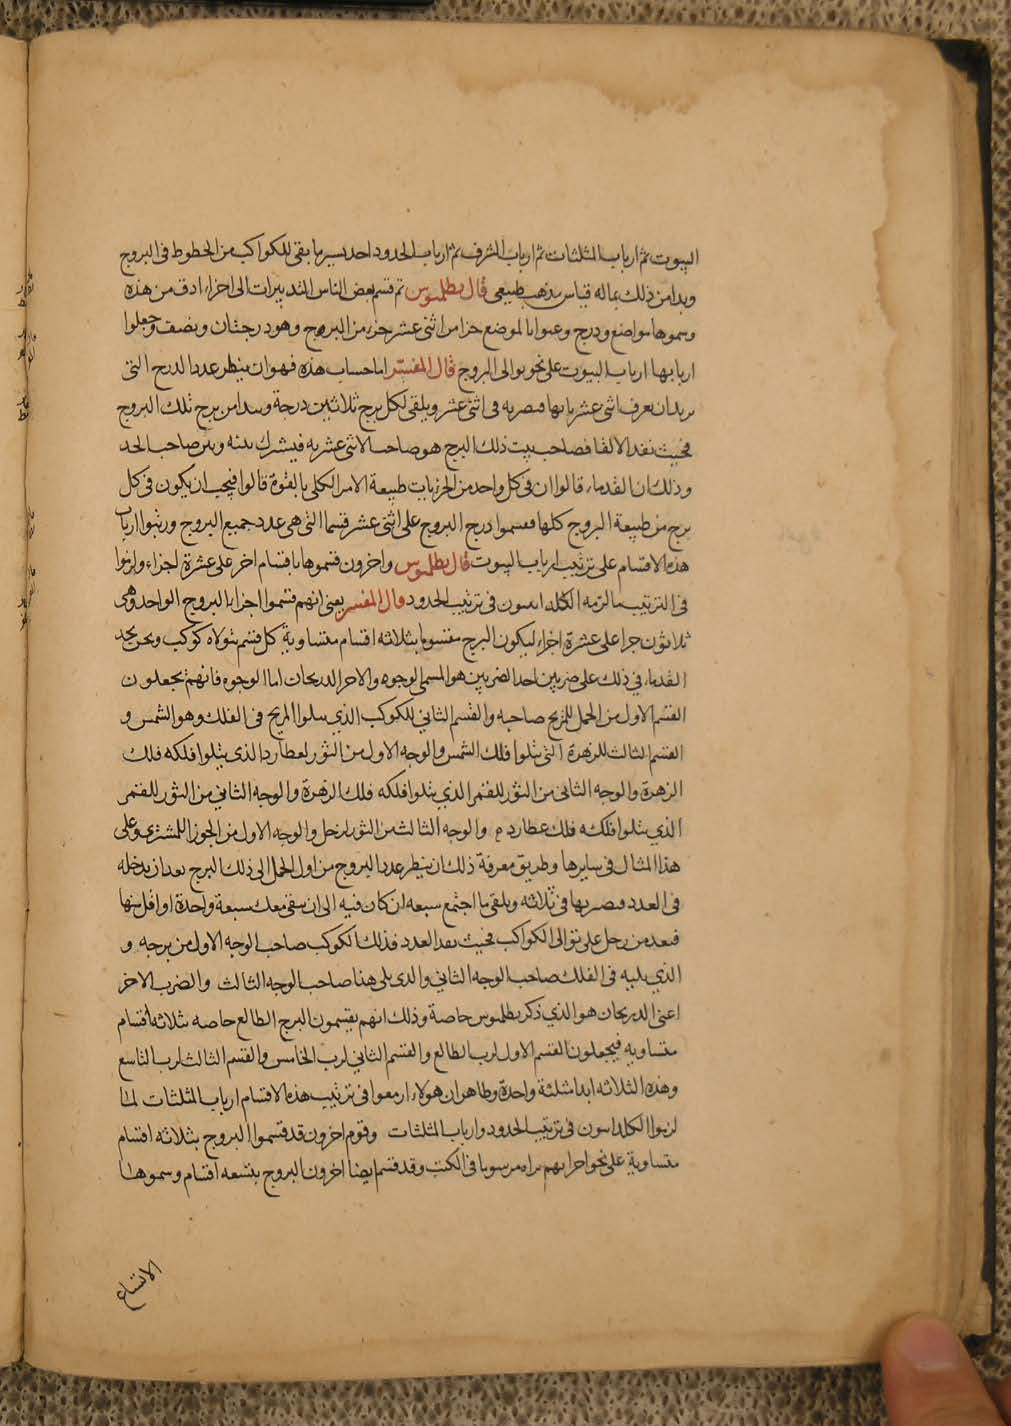 البيوت ثم ارباب المثلثات ثم ارباب الشرف ثم ارباب الحدود احد يسير ما بقى للكواكب من الحظوظ فى البروج
وبدا من ذلك بما له قياس مذهب طبيعى قال بطلميوس ثم قسم بعض الناس التدبيرات الى اجزاء ادق من هذه
وسموها مواضع ودرج وعنوا بالموضع جزا من اثنى عشر جزء من البروج وهو درجتان ونصف وجعلوا
اربابها ارباب البيوت على نحو توالى البروج قال المفسر اما حساب هذه فهو ان ينظر عدد الدرج التى
نريد ان نعرف اثنى عشرياتها فنضربه فى اثنى عشر ويلقى لكل برج ثلاثين درجة ونبدا من برج تلك البروج
فحيث نفد الالقا فصاحب بيت ذلك البرج هو صاحب الاثنى عشريه فيشرك بينه وبين صاحب الحد
وذلك ان القدماء قالوا ان فى كل واحد من الجزئيات طبيعة الامر الكلى بالقوة قالوا فيجب ان يكون فى كل
برج من طبيعة البروج كلها فقسموا درج البروج على اثنى عشر قسما التى هى عدد جميع البروج ورتبوا ارباب
هذه الاقسام على ترتيب ارباب البيوت قال بطلميوس واخرون قسموها باقسام اخر على عشرة اجزاء ولزموا
فى الترتيب ما لزمه الكلدانيون فى ترتيب الحدود قال المفسر يعنى انهم قسموا اجزا البروج الواحد وهى
ثلاثون جزا على عشرة اجزاء ليكون البرج مقسوما بثلاثه اقسام متساوية كل قسم يتولاه كوكب ونحن نجد
القدماء فى ذلك على ضربين احد الضربين هو المسمى الوجوه والاخر الدريجان اما الوجوه فانهم يجعلون
القسم الاول من الحمل للمريخ صاحبه والقسم الثانى للكوكب الذى يتلوا المريخ فى الفلك وهو الشمس و
القسم الثالث للزهرة التى يتلوا فلك الشمس والوجه الاول من الثور لعطارد الذى يتلوا فلكه فلك
الزهرة والوجه الثانى من الثور للقمر الذى يتلوا فلكه فلك الزهرة والوجه الثانى من الثور للقمر
الذى يتلوا فلكه فلك عطارد م والوجه الثالث من الثور لزحل والوجه الاول من الجوزا للمشترى وعلى
هذا المثال فى سايرها وطريق معرفة ذلك ان ينظر عدد البروج من اول الحمل الى ذلك البرج بعد ان يدخله
فى العدد فنضربها فى ثلاثه ويلقى ما اجتمع سبعه ان كان فيه الى ان يبقى معك سبعة واحدة او اقل منها
فنعد من زحل على توالى الكواكب فحيث نفد العدد فذلك الكوكب صاحب الوجه الاول من برجه و
الذى يليه فى الفلك صاحب الوجه الثانى والذى يلى هذا صاحب الوجه الثالث والضرب الاخر
اعنى الدريجان هو الذى ذكر بطلميوس خاصة وذلك انهم يقسمون البرج الطالع خاصه بثلاثه اقسام
متساويه فيجعلون القسم الاول لرب الطالع والقسم الثانى لرب الخامس والقسم الثالث لرب التاسع
وهذه الثلاثه ابدا مثلثة واحدة وظاهر ان هولاء ازمعوا فى ترتيب هذه الاقسام ارباب المثلثات لما
لزموا الكلدانيون فى ترتيب الحدود وارباب المثلثات وقوم اخرون قد قسموا البروج بثلاثه اقسام
متساوية على نحو اخر انهم نراه مرسوما فى الكتب وقد قسم ايضا اخرون البروج بتسعه اقسام وسموها
الاتساع